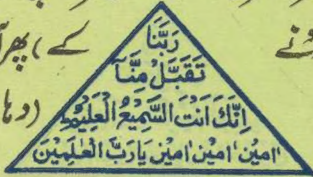 رَبَّنَا
تَقَبَّلْ مِنَّا
اِنَّكَ اَنْتَ السَّمِیْعُ الْعَلِیْمُ
اٰمِیْن اٰمِیْن اٰمِیْن یَارَبَّ الْعٰلَمِیْنَ
کے، پھر